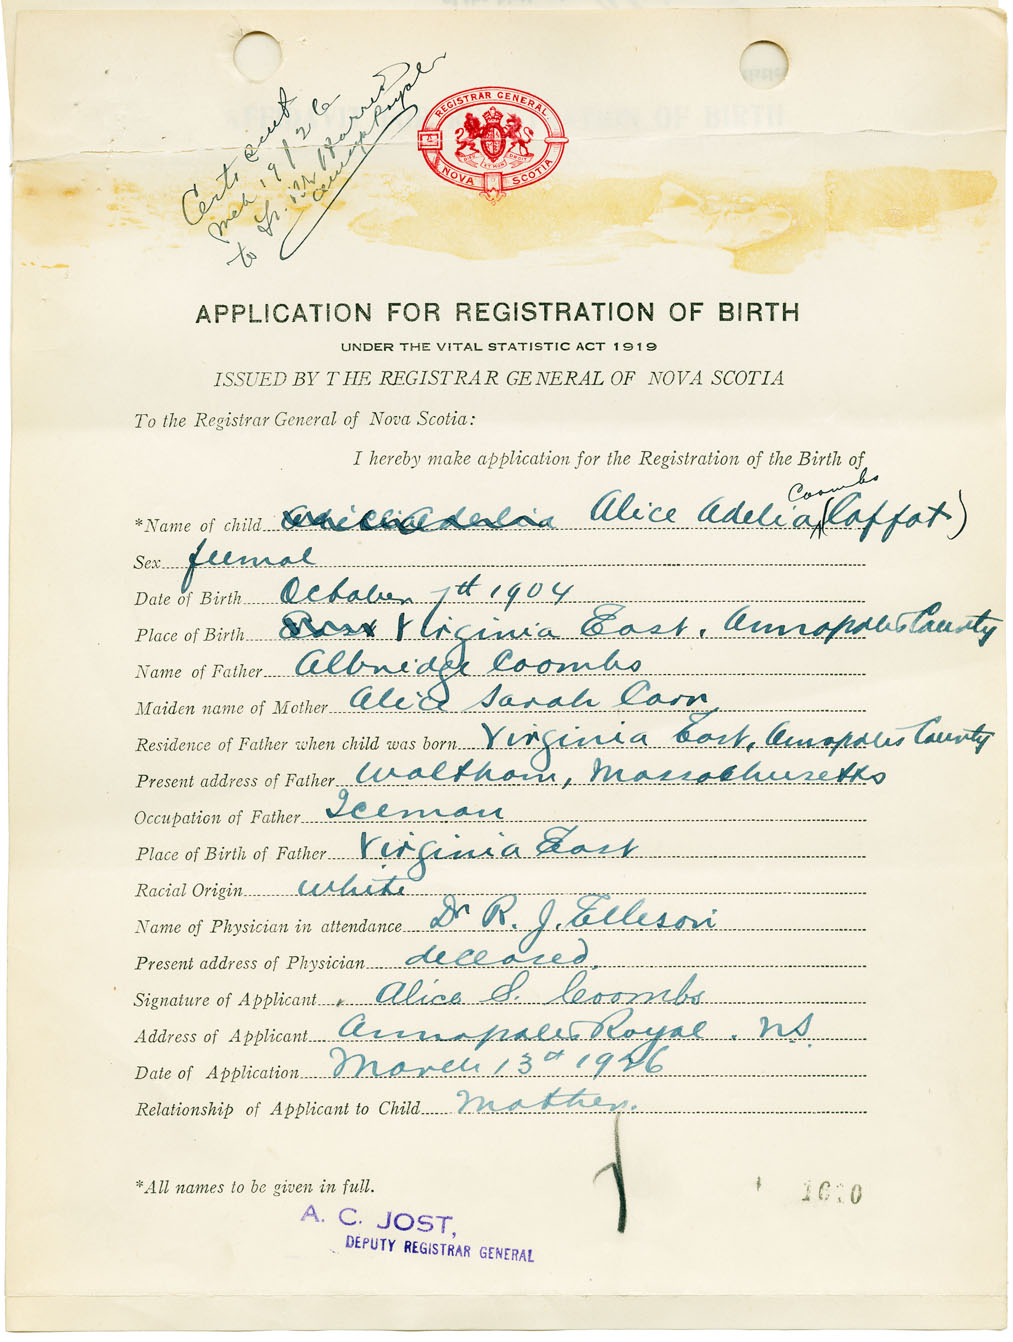 Certs sent
Mch 19/26
to
REGISTRAR GENERAL
NOVA SCOTIA
APPLICATION FOR REGISTRATION OF BIRTH
UNDER THE VITAL STATISTIC ACT 1919
ISSUED BY THE REGISTRAR GENERAL OF NOVA SCOTIA
To the Registrar General of Nova Scotia:
I hereby make application for the Registration of the Birth of
Coombs
*Name of child Alice Adelia (Caffat)
Sex feemal
Date of Birth October 7th 1904
Place of Birth Virginia East, Annapolis County
Name of Father Albridge Coombs
Maiden name of Mother Alice Sarah
Residence of Father when child was born Virginia East, Annapolis County
Present address of Father Waltham, Massachusetts
Occupation of Father Iceman
Place of Birth of Father Virginia East
Racial Origin white
Name of Physician in attendance Dr R. J. Elleson
Present address of Physician deceased.
Signature of Applicant Alice S. Coombs
Address of Applicant Annapolis Royal. N.S.
Date of Application March 13d 1926
Relationship of Applicant to Child Mother.
*All names to be given in full.
A. C. JOST,
DEPUTY REGISTRAR GENERAL